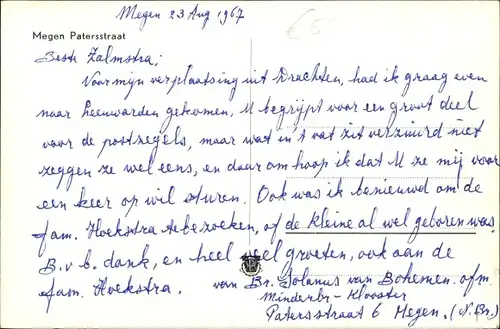 Megen 23 Aug 1967
€5
Megen Patersstraat
Beste Zalmstra;
Voor mijn verplaatsing uit Drachten, had ik graag even
naar Leeuwarden gekomen. U begrijpt voor een groot deel
voor de postzegels, maar wat in 't vat zit verzuurd niet
zeggen ze wel eens, en daarom hoop ik dat U ze mij voor
een keer op wil sturen. Ook was ik benieuwd om de
fam. Hoekstra te bezoeken, of de kleine al wel geboren was.
B.v.b. dank, en heel veel groeten, ook aan de
fam. Hoekstra. van Br. Jolanus van Bohemen. ofm.
Minderbr-Klooster
Patersstraat 6 Megen. (N.Br.)